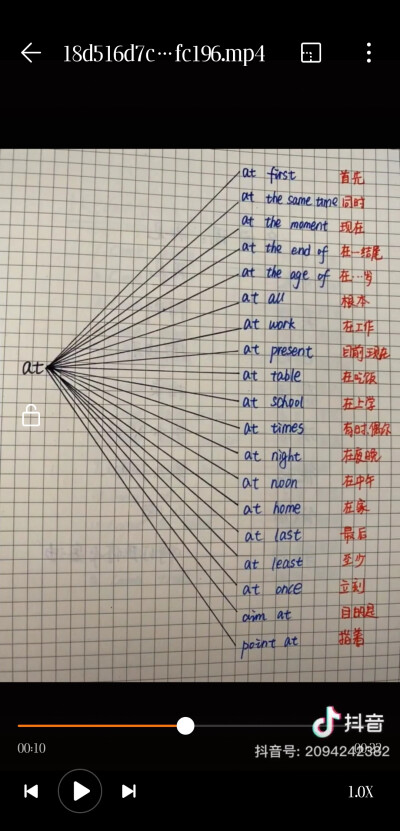 18d516d7c…fc196.mp4
at first 首先
at the same time 同时
at the moment 现在
at the end of 在…结尾
at the age of 在…岁
at all 根本
at work 在工作
at present 目前,现在
at table 在吃饭
at school 在上学
at
at times 有时,偶尔
at night 在夜晚
at noon 在中午
at home 在家
at last 最后
at least 至少
at once 立刻
aim at 目的是
point at 指着
抖音
00:10
抖音号: 2094242382
1.0X